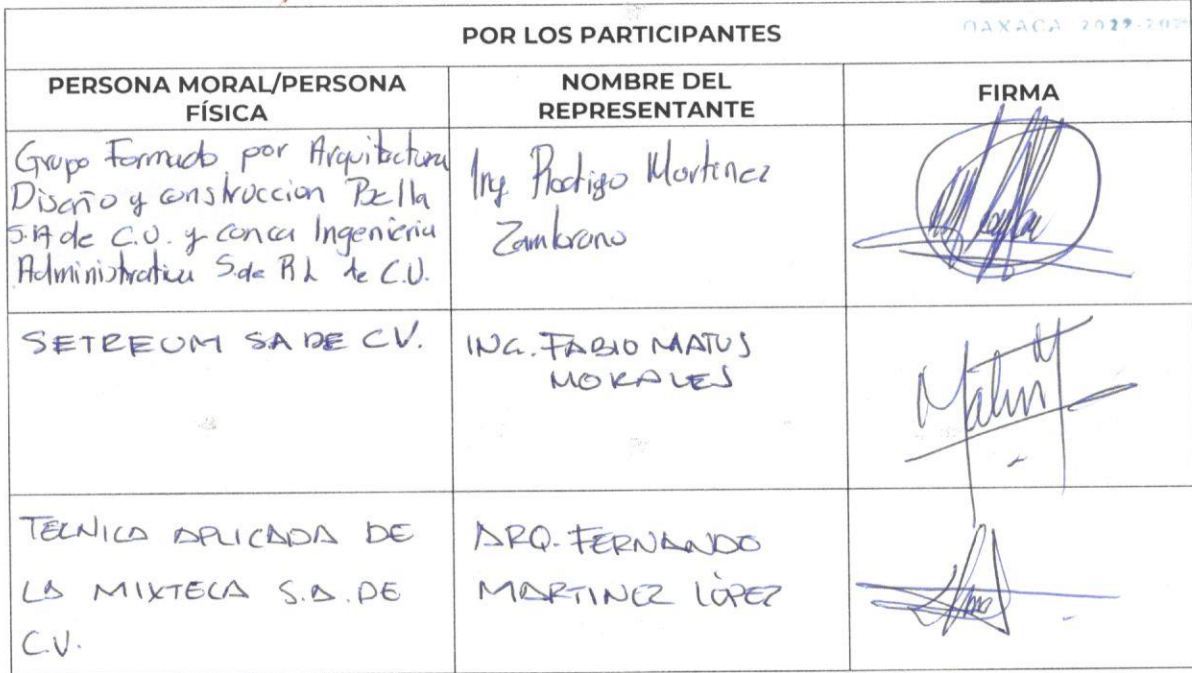 OAXACA 2022-202
POR LOS PARTICIPANTES
PERSONA MORAL/PERSONA
FÍSICA
NOMBRE DEL
REPRESENTANTE
FIRMA
Grupo Formado por Arquitectura
Diseño y construccion Bella
S.A de C.V. y conca Ingenieria
Administrativa S.de R L de C.V.
Ing Rodrigo Martinez
Zambrano
SETREUM SA DE CV.
ING. FABIO MATUS
MORALES
TECNICA APLICADA DE
LA MIXTECA S.A. DE
C.V.
ARQ. FERNANDO
MARTINEZ LÓPEZ